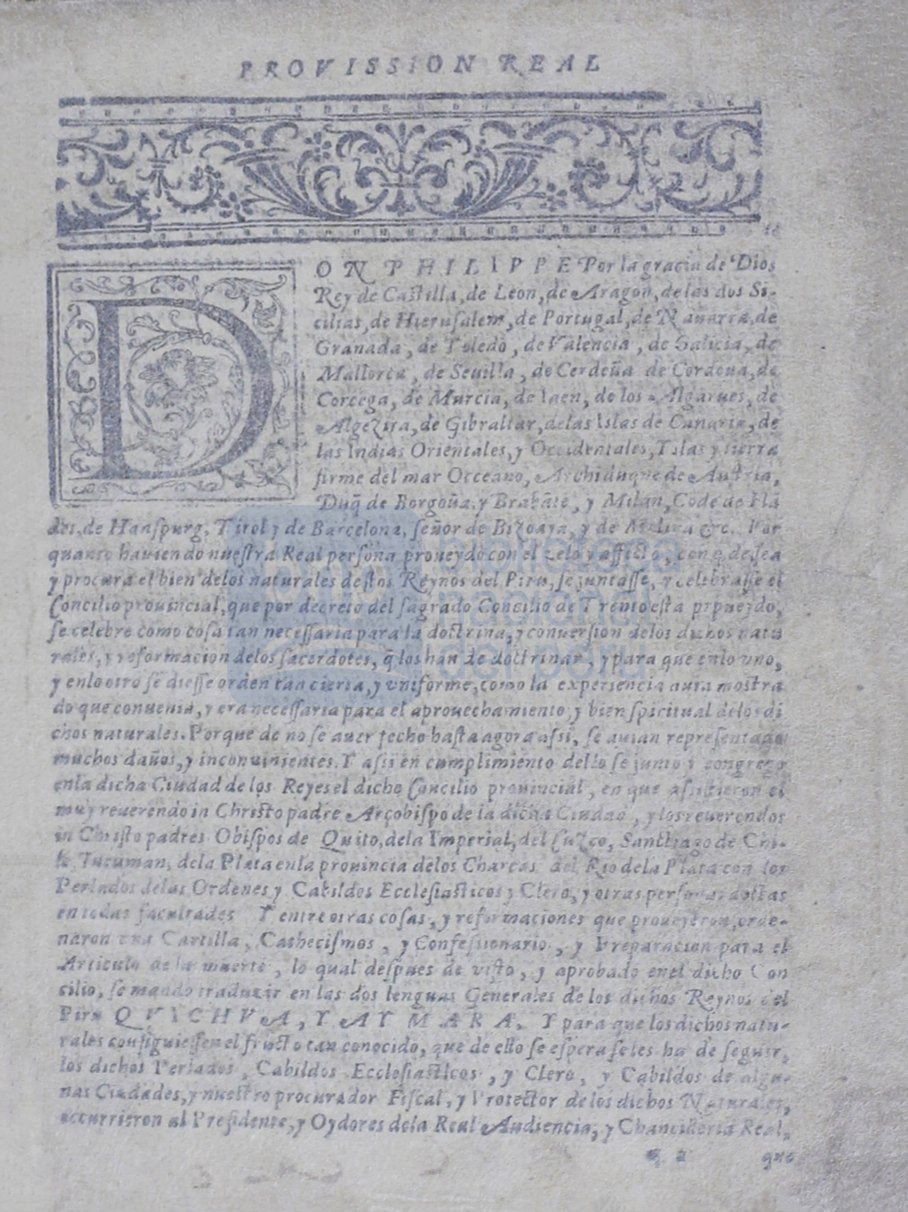 PROVISSION REAL
DON PHILIPPE Por la gracia de Dios
Rey de Castilla, de Leon, de Aragon, de las dos Si-
cilias, de Hierusalem, de Portugal, de Nauarra, de
Granada, de Toledo, de Valencia, de Galicia, de
Mallorca, de Seuilla, de Cerdeña de Cordoua, de
Corcega, de Murcia, de Iaen, de los Algarues, de
Algezira, de Gibraltar, delas Islas de Canaria, de
las Indias Orientales, y Occidentales, Islas y tierra
firme del mar Occeano, Archiduque de Austria,
Duq̃ de Borgoña, y Brabãte, y Milan, Cõde de Flã
des, de Hauspurg, Tirol y de Barcelona, señor de Bizcaya, y de Molina &c. Por
quanto hauiendo nuestra Real persona proueydo con el zelo y affecto, con q̃ dessea
y procura el bien delos naturales destos Reynos del Piru, se juntasse, y celebrasse el
Concilio prouincial, que por decreto del sagrado Concilio de Trento esta proueydo,
se celebre como cosa tan necessaria para la doctrina, y conuersion delos dichos natu
rales, y reformacion delos sacerdotes, q̃ los han de doctrinar, y para que enlo uno,
y enlo otro se diesse orden tan cierta, y vniforme, como la experiencia auia mostra
do que conuenia, y era necessaria para el aprouechamiento, y bien spiritual delos di
chos naturales. Porque de no se auer fecho hasta agora assi, se auian representado
muchos daños, y inconuinientes. Y assi en cumplimiento dello se junto y congrego
enla dicha Ciudad de los Reyes el dicho Concilio prouincial, en que assistieron el
muy reuerendo in Christo padre Arçobispo de la dicha Ciudad, y los reuerendos
in Christo padres Obispos de Quito, dela Imperial, del Cuzco, Santiago de Chi-
le, Tucuman, dela Plata enla prouincia delos Charcas del Rio dela Plata con los
Perlados delas Ordenes y Cabildos Ecclesiasticos y Clero, y otras personas doctas
en todas facultades Y entre otras cosas, y reformaciones que proueyeron, orde-
naron vna Cartilla, Cathecismos, y Confessionario, y Preparacion para el
Articulo de la muerte, lo qual despues de visto, y aprobado enel dicho Con
cilio, se mando traduzir en las dos lenguas Generales de los dichos Reynos del
Piru QVICHVA, Y AYMARA. Y para que los dichos natu-
rales consiguiessen el fructo tan conocido, que de ello se espera seles ha de seguir,
los dichos Perlados, Cabildos Ecclesiasticos, y Clero, y Cabildos de algu-
nas Ciudades, y nuestro procurador Fiscal, y Protector de los dichos Naturales,
occurrieron al Presidente, y Oydores dela Real Audiencia, y Chancilleria Real,
2 que
biblioteca
nacional
del perú